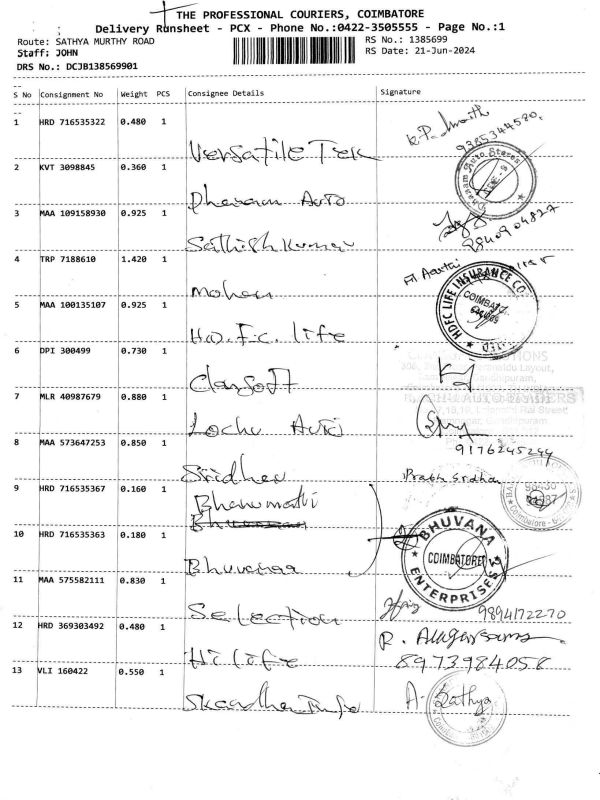 THE PROFESSIONAL COURIERS, COIMBATORE
Delivery Runsheet - PCX - Phone No.:0422-3505555 - Page No.:1
Route: SATHYA MURTHY ROAD
RS No.: 1385699
Staff: JOHN
RS Date: 21-Jun-2024
DRS No.: DCJB138569901
S No Consignment No Weight PCS Consignee Details Signature
1 HRD 716535322 0.480 1
Versatile Tek
9385344580.
2 KVT 3098845 0.360 1
Dhanam Auto
Dhanam Auto Stores
3 MAA 109158930 0.925 1
Sathish kumar
9840904827
4 TRP 7188610 1.420 1
Mohan
Aarthi
5 MAA 100135107 0.925 1
H.D.F.C. life
HDFC LIFE INSURANCE CO
COIMBATORE
6 DPI 300499 0.730 1
Classoft
7 MLR 40987679 0.880 1
Lochu Auto
9176245249
8 MAA 573647253 0.850 1
Sridher
Prabh Sridhar
9 HRD 716535367 0.160 1
Bhanumathi
10 HRD 716535363 0.180 1
Bhuvanaa
BHUVANA ENTERPRISES
COIMBATORE
11 MAA 575582111 0.830 1
Selection
9894172270
12 HRD 369303492 0.480 1
Hi life
8973984058
13 VLI 160422 0.550 1
Skandha Info
A. Sathya